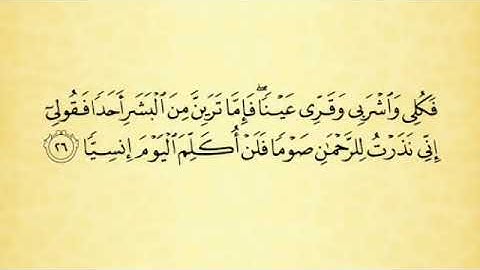 فَكُلِى وَٱشْرَبِى وَقَرِّى عَيْنًۭا ۖ فَإِمَّا تَرَيِنَّ مِنَ ٱلْبَشَرِ أَحَدًۭا فَقُولِىٓ
إِنِّى نَذَرْتُ لِلرَّحْمَـٰنِ صَوْمًۭا فَلَنْ أُكَلِّمَ ٱلْيَوْمَ إِنسِيًّۭا ٢٦